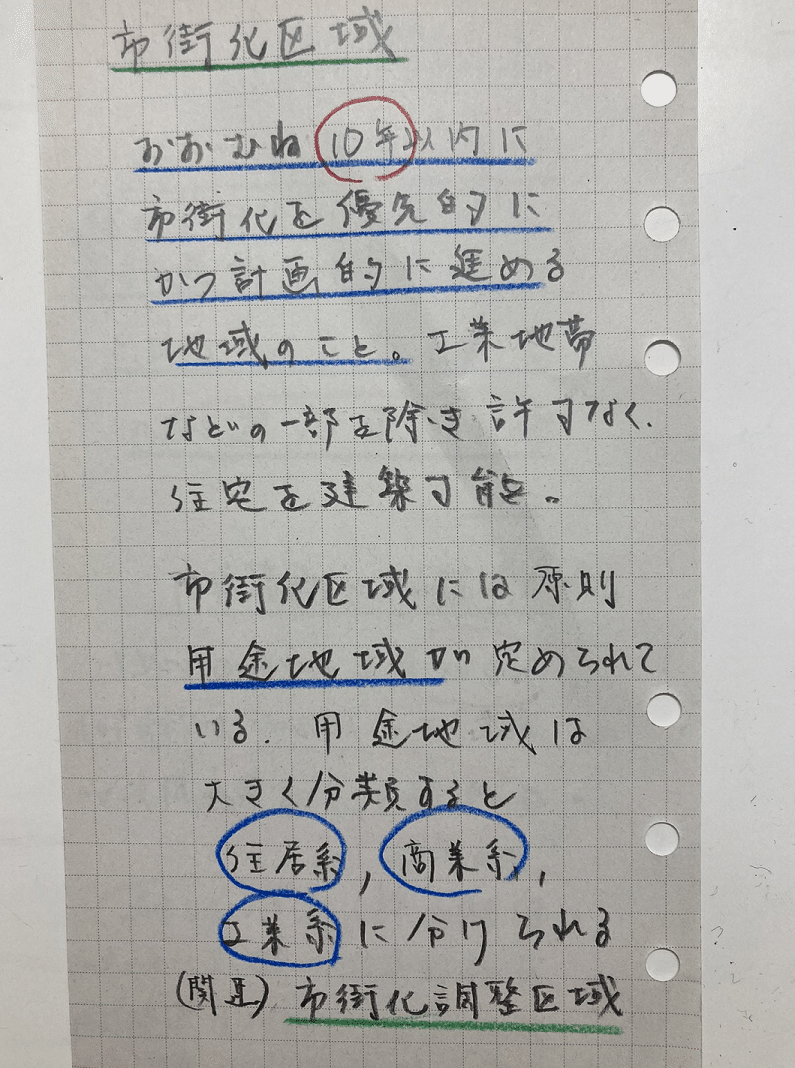 市街化区域
おおむね10年以内に
市街化を優先的に
かつ計画的に進める
地域のこと。工業地帯
などの一部を除き許可なく、
住宅を建築可能。
市街化区域には原則
用途地域が定められて
いる。用途地域は
大きく分類すると
住居系,商業系,
工業系に分けられる
(関連)市街化調整区域